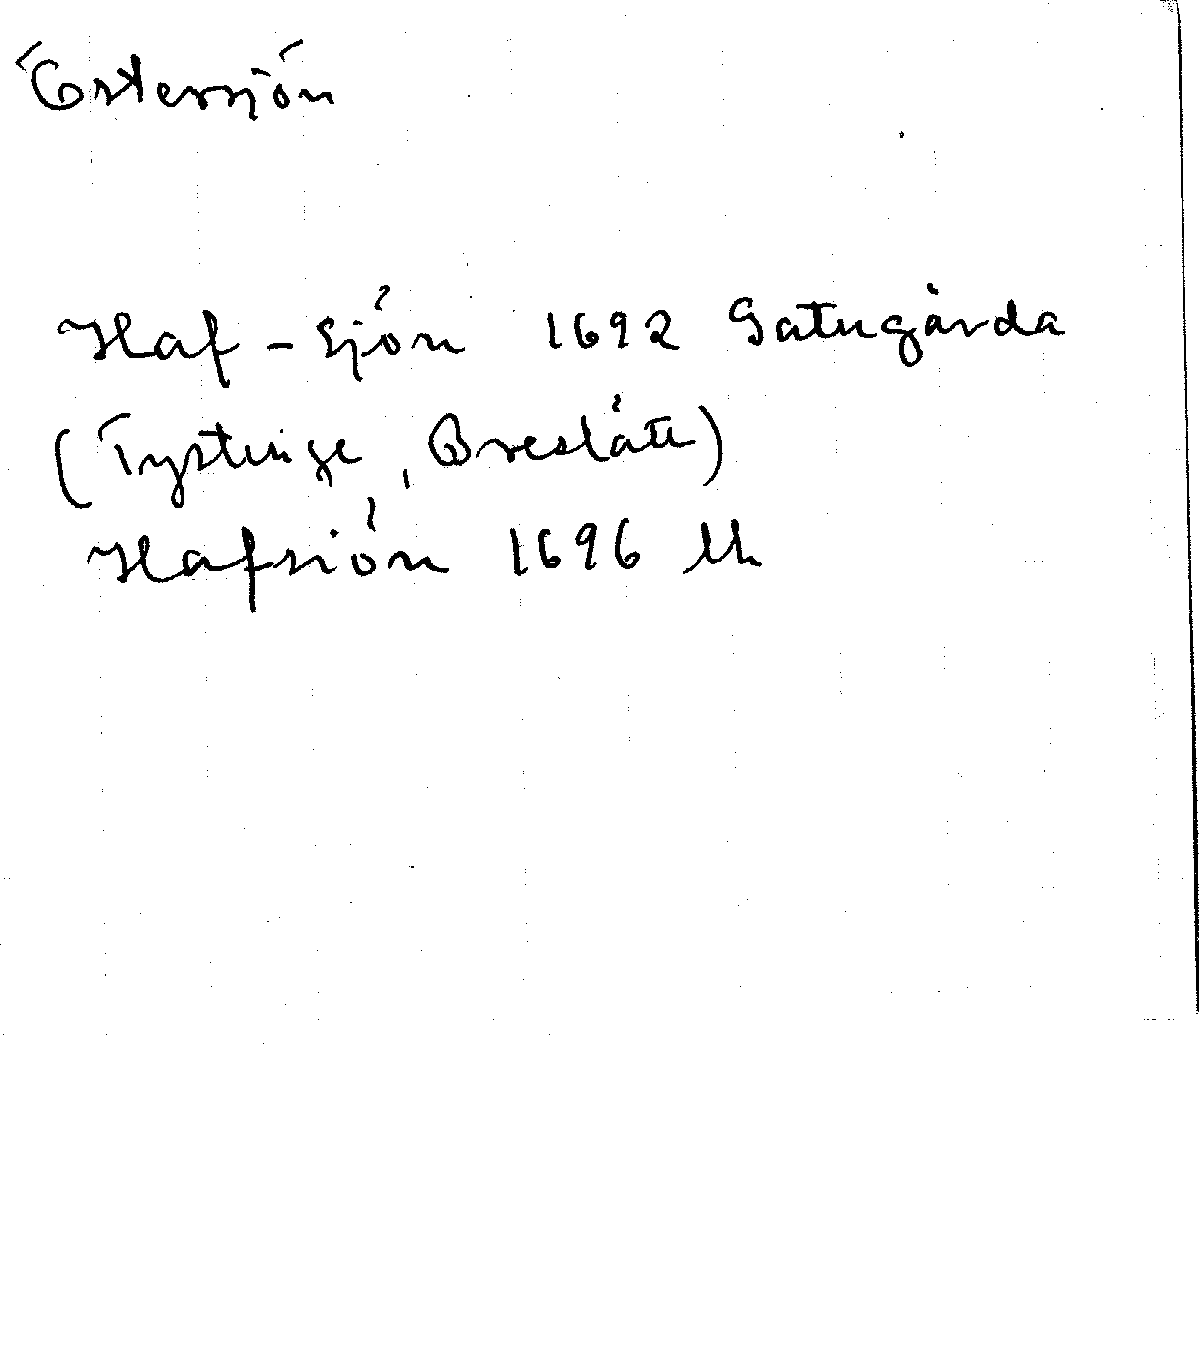 Östersjön
Haf-Sjön 1692 Gatugårda
(Tystinge, Breslätt)
Hafsiön 1696